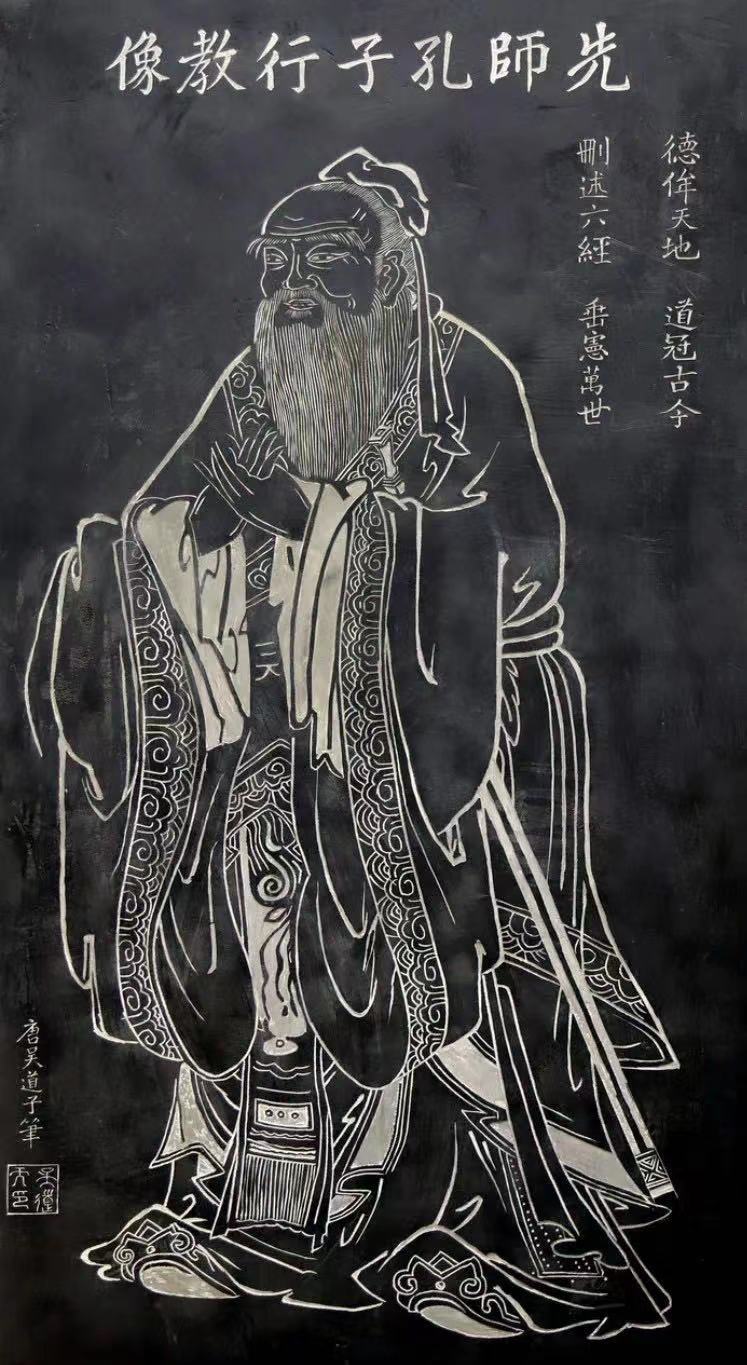 先師孔子行教像
德侔天地 道冠古今
刪述六經 垂憲萬世
唐吴道子筆